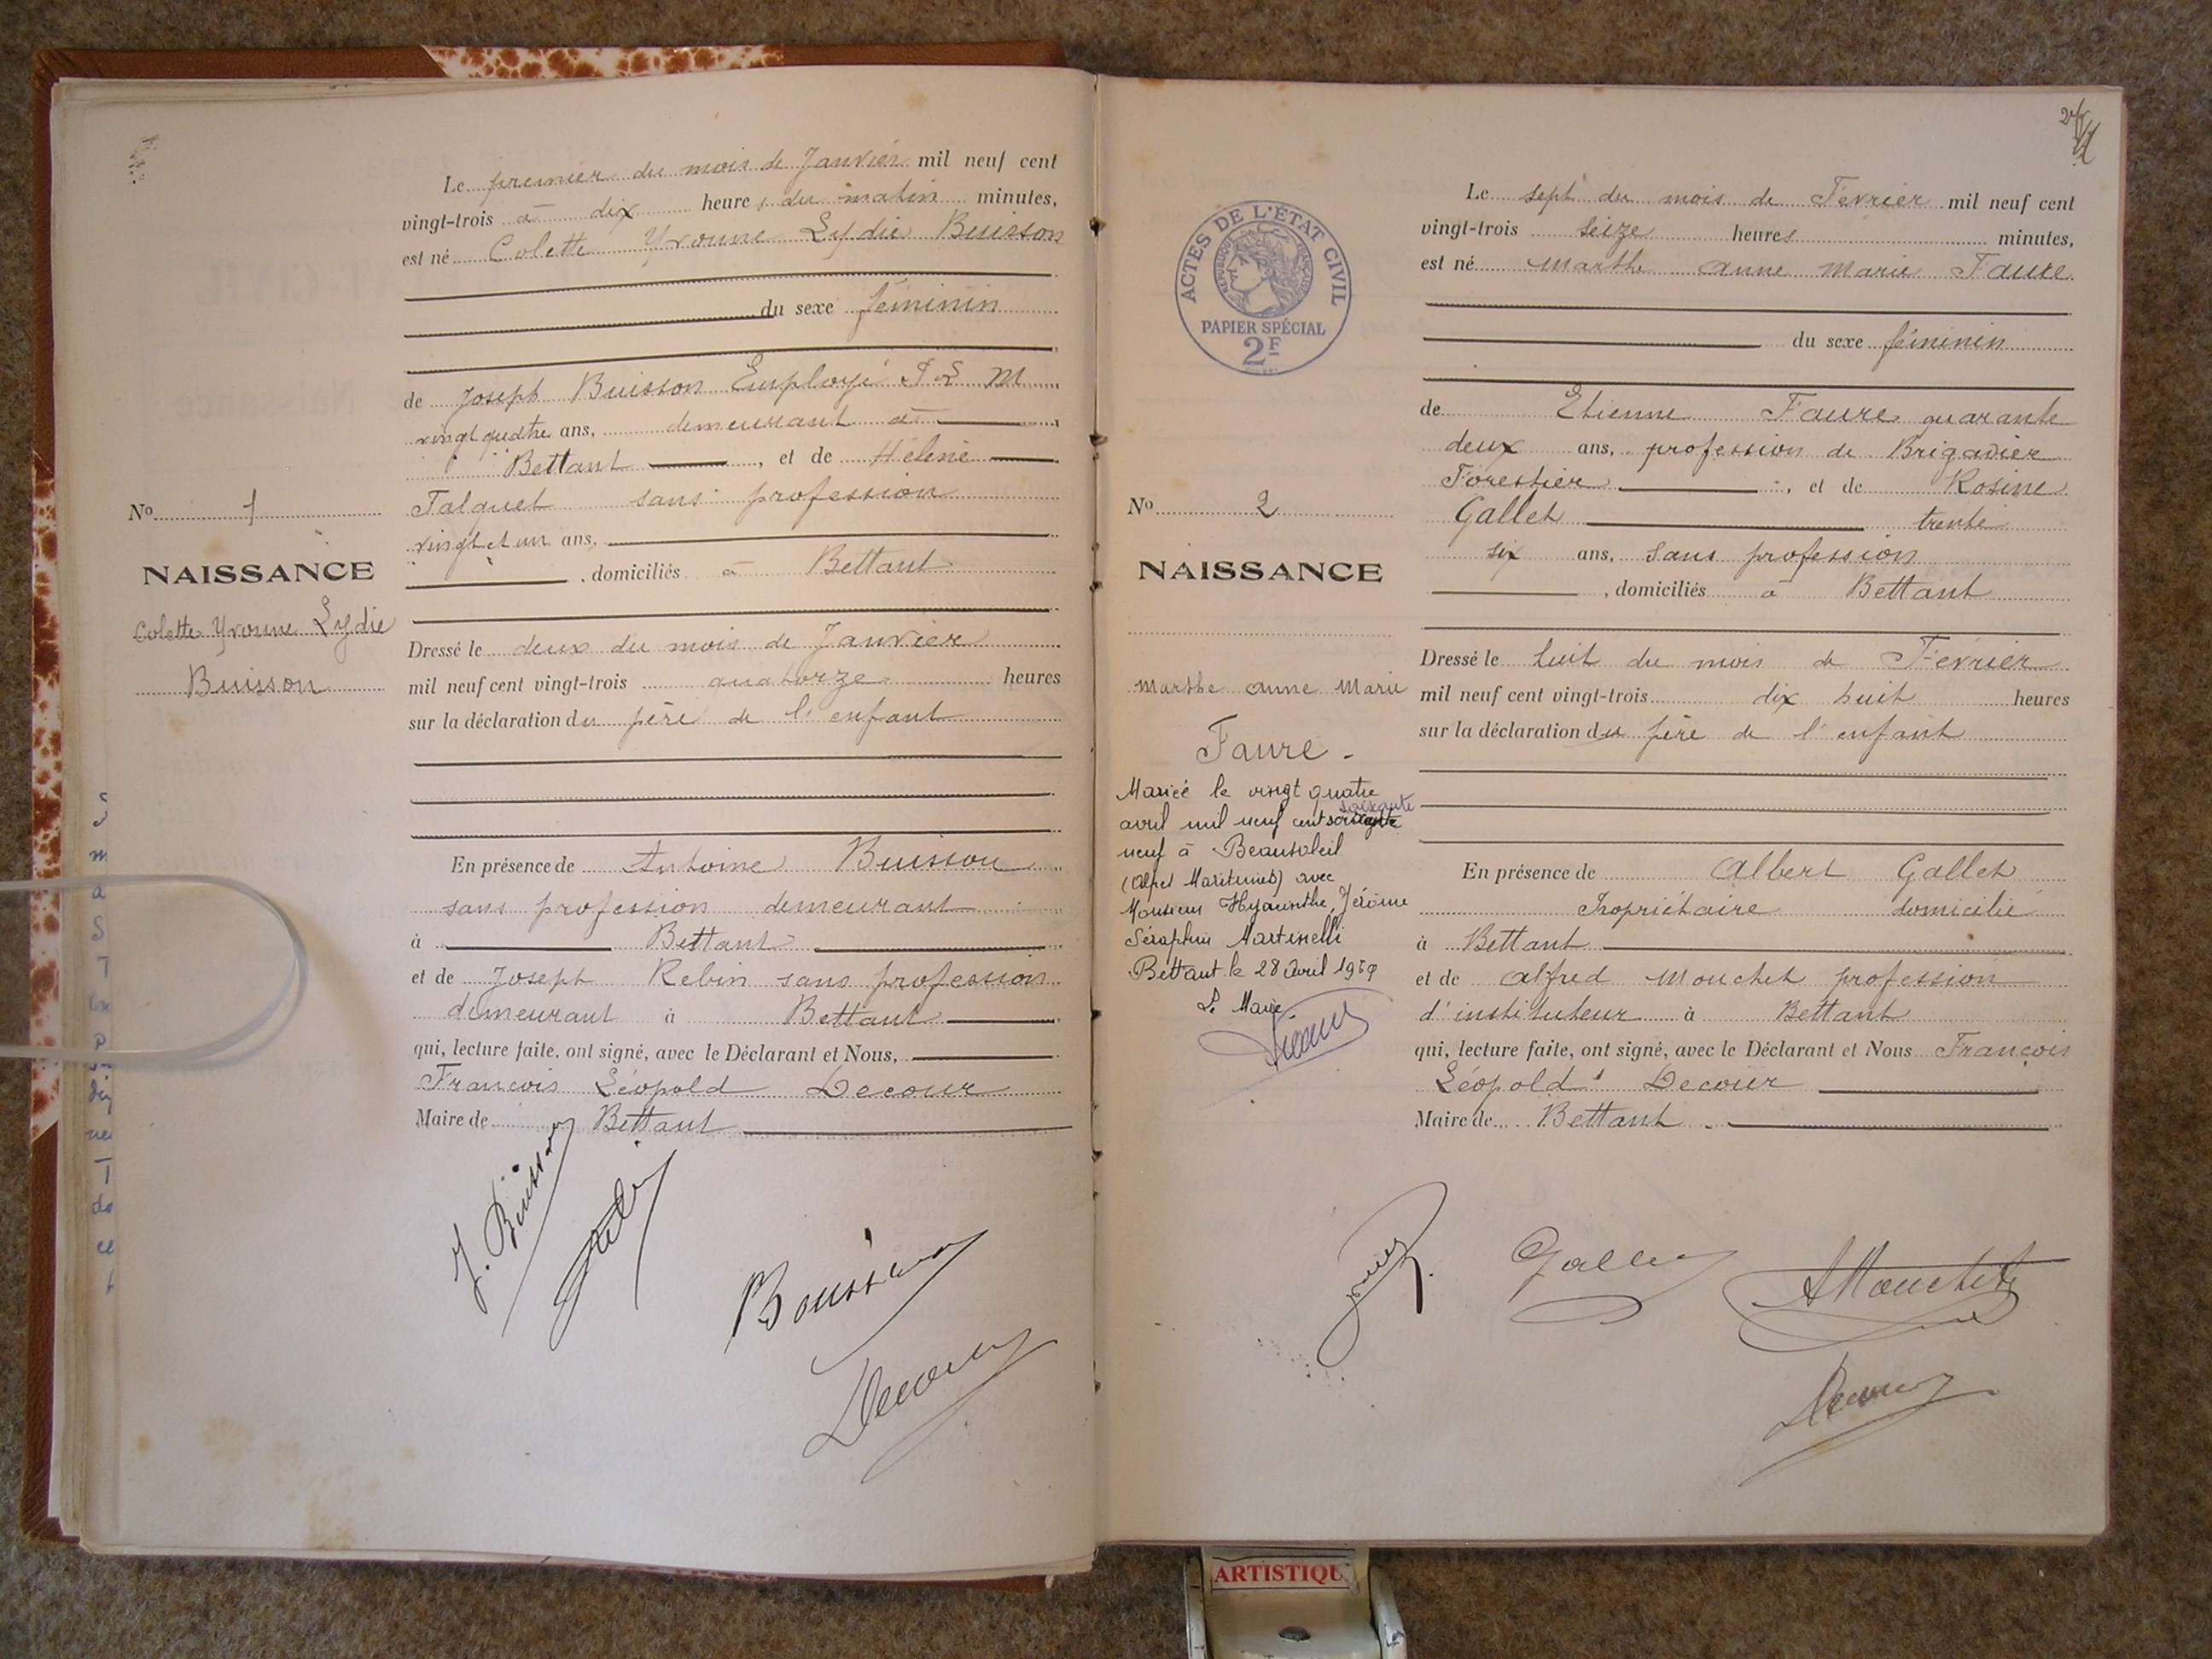 Le premier du mois de Janvier mil neuf cent
vingt-trois à dix heures du matin minutes,
est né Colette Yvonne Lydie Buisson
du sexe féminin
de Joseph Buisson Employé P L M
vingt quatre ans, demeurant à
Bettant, et de Hélène
Talguet sans profession
vingt et un ans,
, domiciliés à Bettant
Dressé le deux du mois de Janvier
mil neuf cent vingt-trois quatorze heures
sur la déclaration du père de l'enfant
En présence de Antoine Buisson
sans profession demeurant
à Bettant
et de Joseph Rebin sans profession
demeurant à Bettant
qui, lecture faite, ont signé, avec le Déclarant et Nous,
François Léopold Decour
Maire de Bettant
J. Buisson
Buisson
Decour
No 1
NAISSANCE
Colette Yvonne Lydie
Buisson
ACTES DE L'ÉTAT CIVIL
RÉPUBLIQUE FRANÇAISE
PAPIER SPÉCIAL
2F
No 2
NAISSANCE
Marthe Anne Marie
Faure
Mariée le vingt quatre
soixante
avril mil neuf cent
neuf à Beausoleil
(Alpes Maritimes) avec
Monsieur Hyacinthe, Jérôme
Séraphin Martinelli
Bettant le 28 Avril 1969
Le Maire
Le sept du mois de Février mil neuf cent
vingt-trois seize heures minutes,
est né Marthe Anne Marie Faure
du sexe féminin
de Etienne Faure quarante
deux ans, profession de Brigadier
Forestier, et de Rosine
Gallet trente
six ans, sans profession
, domiciliés à Bettant
Dressé le huit du mois de Février
mil neuf cent vingt-trois dix huit heures
sur la déclaration du père de l'enfant
En présence de Albert Gallet
Propriétaire domicilié
à Bettant
et de Alfred Mouchet profession
d'instituteur à Bettant
qui, lecture faite, ont signé, avec le Déclarant et Nous François
Léopold Decour
Maire de Bettant
Gallet
AMouchet
Decour
ARTISTIQU